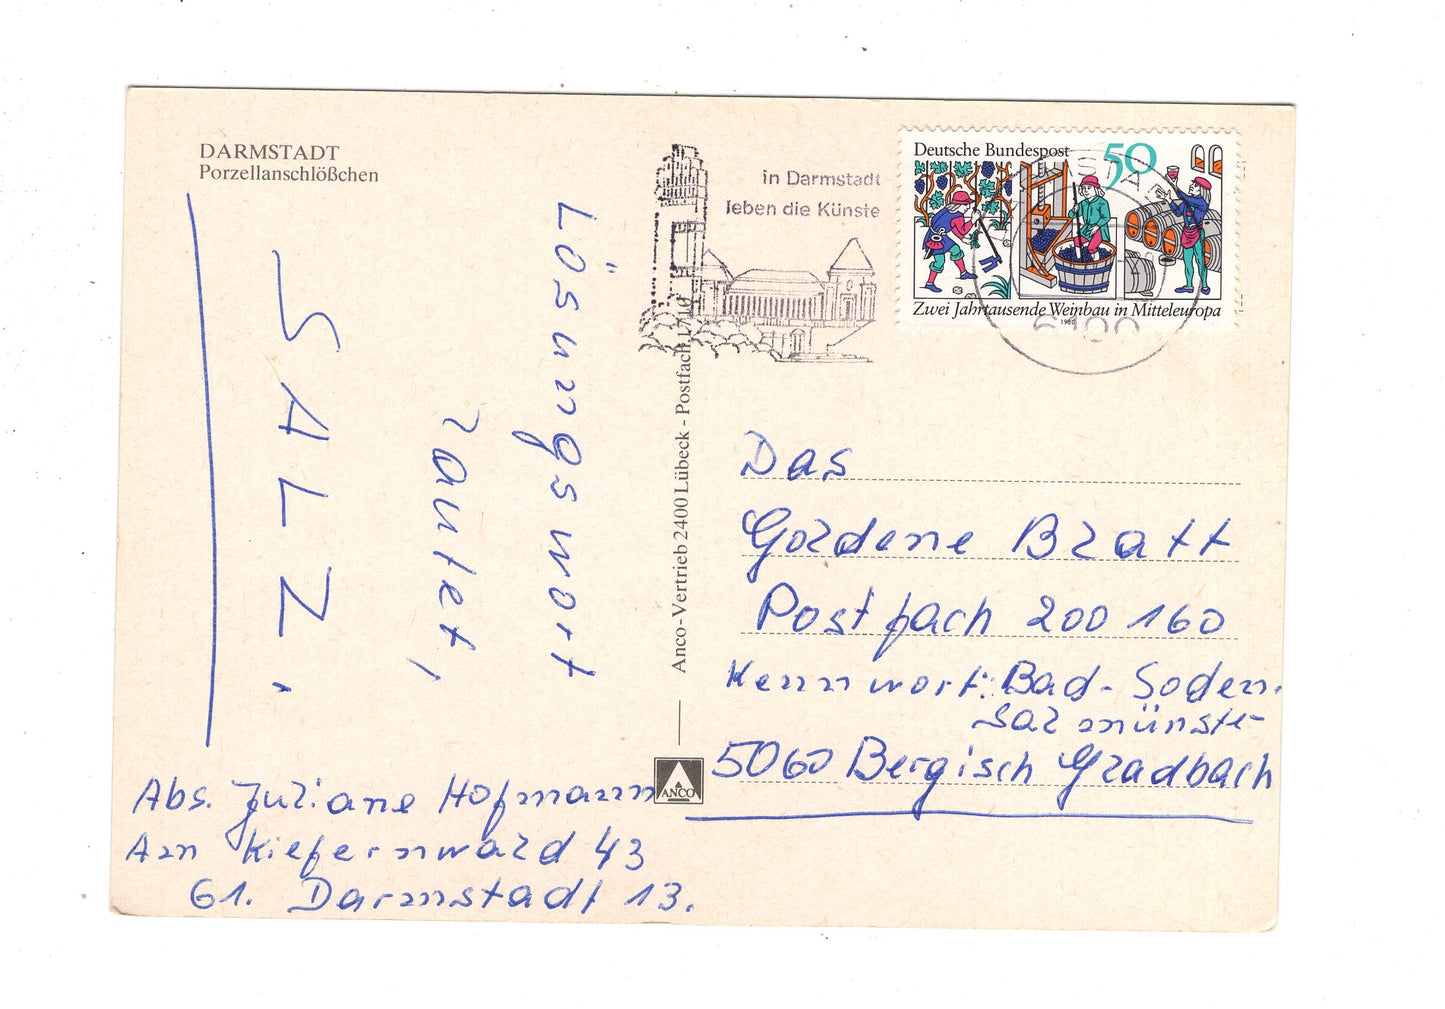 DARMSTADT
Porzellanschlößchen
in Darmstadt
leben die Künste
Deutsche Bundespost 50
Zwei Jahrtausende Weinbau in Mitteleuropa
1980
6100
Lösungswort
lautet,
SALZ.
Anco-Vertrieb 2400 Lübeck - Postfach 1710
ANCO
Das
Goldene Blatt
Postfach 200 160
Kennwort: Bad-Soden.
Salmünster
5060 Bergisch Gladbach
Abs. Juliane Hofmann
Am Kiefernwald 43
61. Darmstadt 13.